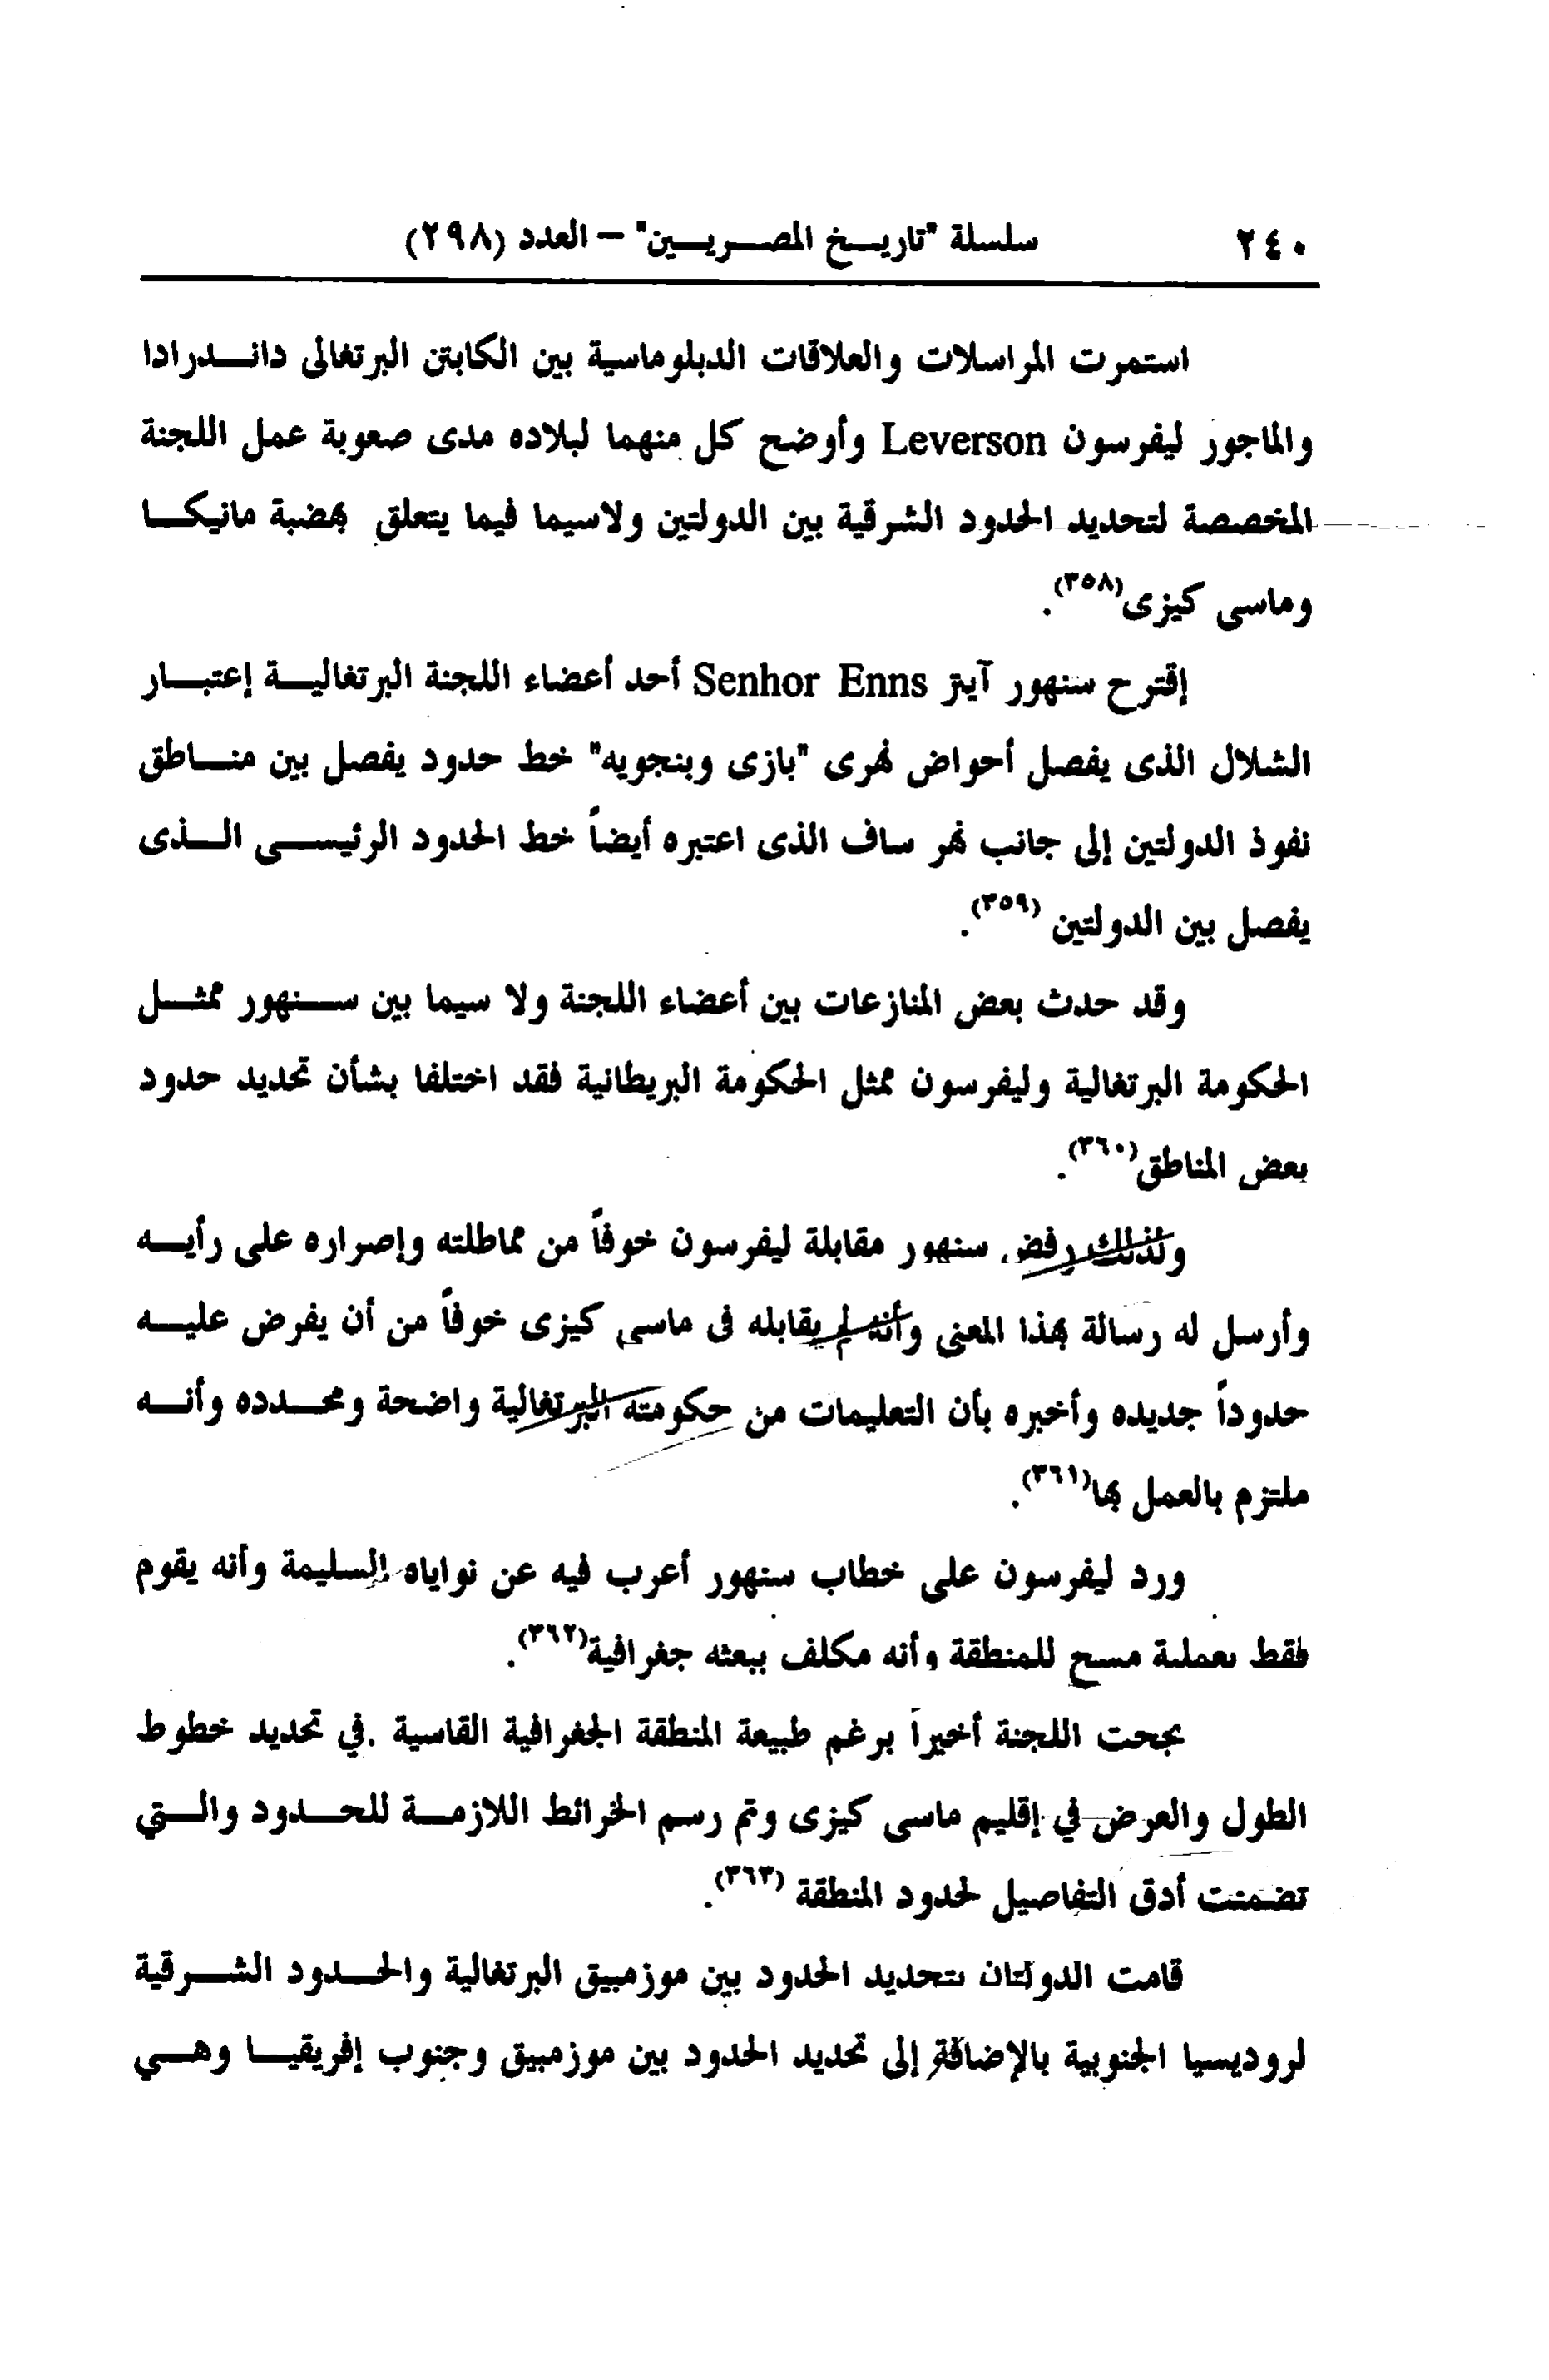 ٢٤٠ سلسلة "تاريخ المصريين" – العدد (٢٩٨)
استمرت المراسلات والعلاقات الدبلوماسية بين الكابتن البرتغالى داندرادا
والماجور ليفرسون Leverson وأوضح كل منهما لبلاده مدى صعوبة عمل اللجنة
المخصصة لتحديد الحدود الشرقية بين الدولتين ولاسيما فيما يتعلق بهضبة مانيكا
وماسى كيزى(٣٥٨).
إقترح سنهور آيتر Senhor Enns أحد أعضاء اللجنة البرتغالية إعتبار
الشلال الذى يفصل أحواض نهرى "بازى وبنجويه" خط حدود يفصل بين مناطق
نفوذ الدولتين إلى جانب نهر ساف الذى اعتبره أيضاً خط الحدود الرئيسى الذى
يفصل بين الدولتين (٣٥٩).
وقد حدث بعض المنازعات بين أعضاء اللجنة ولا سيما بين سنهور ممثل
الحكومة البرتغالية وليفرسون ممثل الحكومة البريطانية فقد اختلفا بشأن تحديد حدود
بعض المناطق(٣٦٠).
ولذلك رفض سنهور مقابلة ليفرسون خوفاً من مماطلته وإصراره على رأيه
وأرسل له رسالة بهذا المعنى وأنه لم يقابله فى ماسى كيزى خوفاً من أن يفرض عليه
حدوداً جديده وأخبره بأن التعليمات من حكومته البرتغالية واضحة ومحدده وأنه
ملتزم بالعمل بها(٣٦١).
ورد ليفرسون على خطاب سنهور أعرب فيه عن نواياه السليمة وأنه يقوم
فقط بعملية مسح للمنطقة وأنه مكلف ببعثه جغرافية(٣٦٢).
نجحت اللجنة أخيراً برغم طبيعة المنطقة الجغرافية القاسية .في تحديد خطوط
الطول والعرض في إقليم ماسى كيزى وتم رسم الخرائط اللازمة للحدود والتي
تضمنت أدق التفاصيل لحدود المنطقة (٣٦٣).
قامت الدولتان بتحديد الحدود بين موزمبيق البرتغالية والحدود الشرقية
لروديسيا الجنوبية بالإضافة إلى تحديد الحدود بين موزمبيق وجنوب إفريقيا وهي